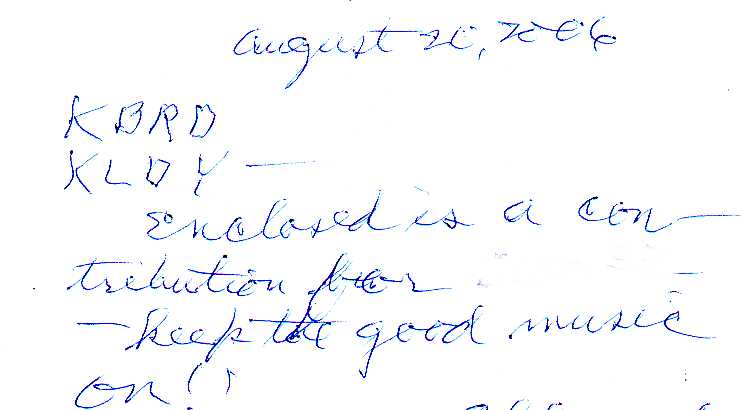 August 20, 2006
KBRD
KLDY —
Enclosed is a con-
tribution for —
— keep the good music
on!!